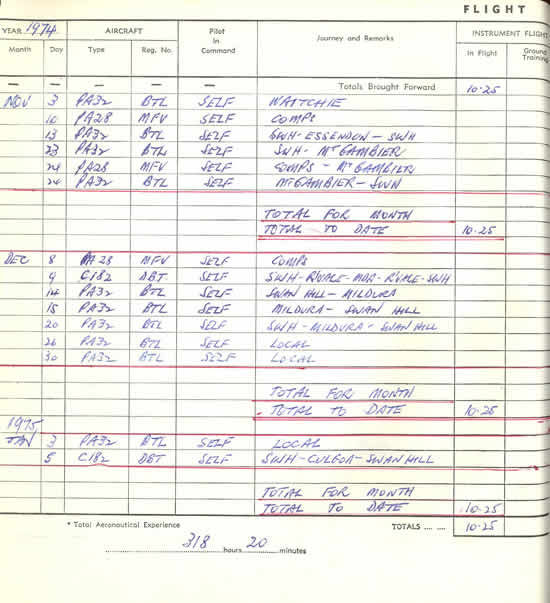 FLIGHT
YEAR 1974 AIRCRAFT Pilot in Command Journey and Remarks INSTRUMENT FLIGHT
Month Day Type Reg. No. In Flight Ground Training
— — — — — Totals Brought Forward 10.25
NOV 3 PA32 BTL SELF WAITCHIE
10 PA28 MFV SELF COMPS
13 PA32 BTL SELF SWH-ESSENDON-SWH
23 PA32 BTL SELF SWH-MT GAMBIER
24 PA28 MFV SELF COMPS - MT GAMBIER
24 PA32 BTL SELF MT GAMBIER-SWH
TOTAL FOR MONTH
TOTAL TO DATE 10.25
DEC 8 PA28 MFV SELF COMPS
9 C182 DBT SELF SWH-R'VALE-MDA-R'VALE-SWH
14 PA32 BTL SELF SWAN HILL-MILDURA
15 PA32 BTL SELF MILDURA-SWAN HILL
20 PA32 BTL SELF SWH-MILDURA-SWAN HILL
26 PA32 BTL SELF LOCAL
30 PA32 BTL SELF LOCAL
TOTAL FOR MONTH
TOTAL TO DATE 10.25
1975
JAN 3 PA32 BTL SELF LOCAL
5 C182 DBT SELF SWH-CULGOA-SWAN HILL
TOTAL FOR MONTH
TOTAL TO DATE 10.25
* Total Aeronautical Experience TOTALS .... .... 10.25
318 hours 20 minutes